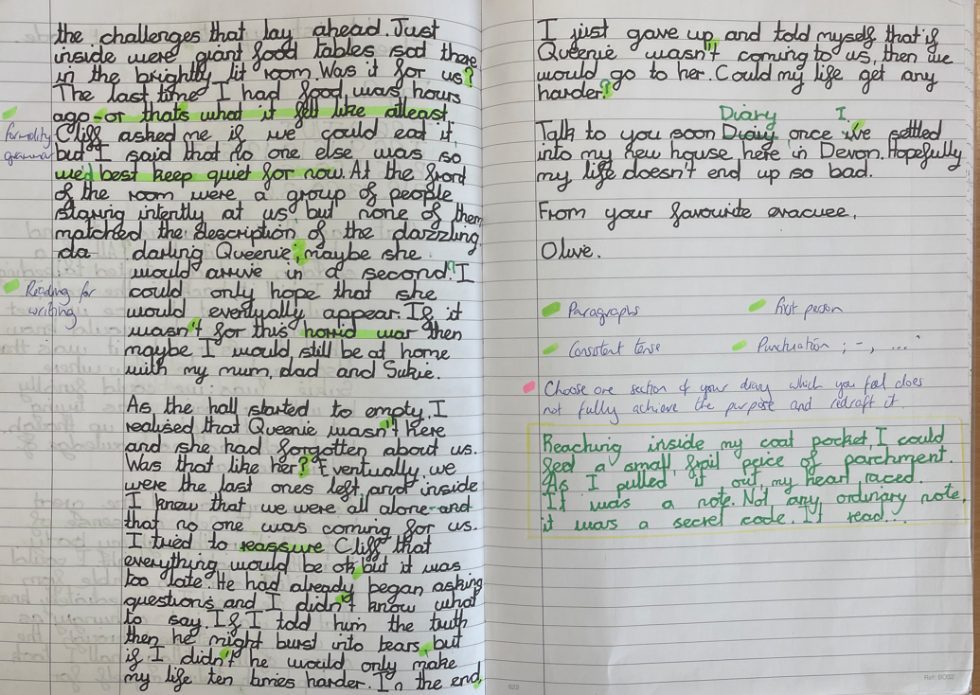 the challenges that lay ahead. Just
inside were giant food tables sod there
in the brightly lit room. Was it for us?
The last time I had food, was, hours
ago - or that's what it felt like atleast.
formality
grammar
Cliff asked me if we could eat it,
but I said that no one else was so
we'd best keep quiet for now. At the front
of the room were a group of people
staring intently at us but none of them
matched the description of the dazzling,
da darling Queenie; maybe she
would arrive in a second? I
Reading for
writing
could only hope that she
would eventually appear. If it
wasn't for this horrid war then
maybe I would still be at home
with my mum, dad and Sukie.
As the hall started to empty, I
realised that Queenie wasn't here
and she had forgotten about us.
Was that like her? Eventually, we
were the last ones left, and inside
I knew that we were all alone - and
that no one was coming for us.
I tried to reassure Cliff that
everything would be ok, but it was
too late. He had already began asking
questions and I didn't know what
to say. If I told him the truth
then he might burst into tears, but
if I didn't he would only make
my life ten times harder. In the end,
I just gave up and told myself that if
Queenie wasn't coming to us, then we
would go to her. Could my life get any
harder?
Diary I.
Talk to you soon Diary once i've settled
into my new house here in Devon. Hopefully
my life doesn't end up so bad.
From your favourite evacuee,
Olive.
Paragraphs
first person
Consistent tense
Punctuation ; - , ....
Choose one section of your diary which you feel does
not fully achieve the purpose and redraft it.
Reaching inside my coat pocket, I could
feel a small, frail peice of parchment.
As I pulled it out, my heart raced.
It was a note. Not any ordinary note,
it was a secret code. It read...